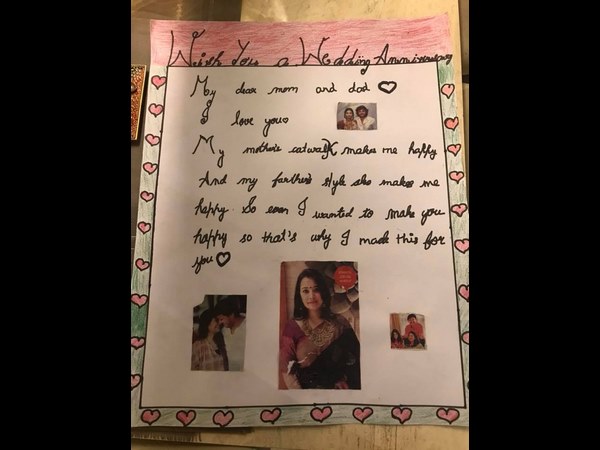 Wish You a Wedding Anniversary
My dear mom and dad
I love you
My mother's catwalk makes me happy
And my farther's style also makes me
happy. So even I wanted to make you
happy so that's why I made this for
you